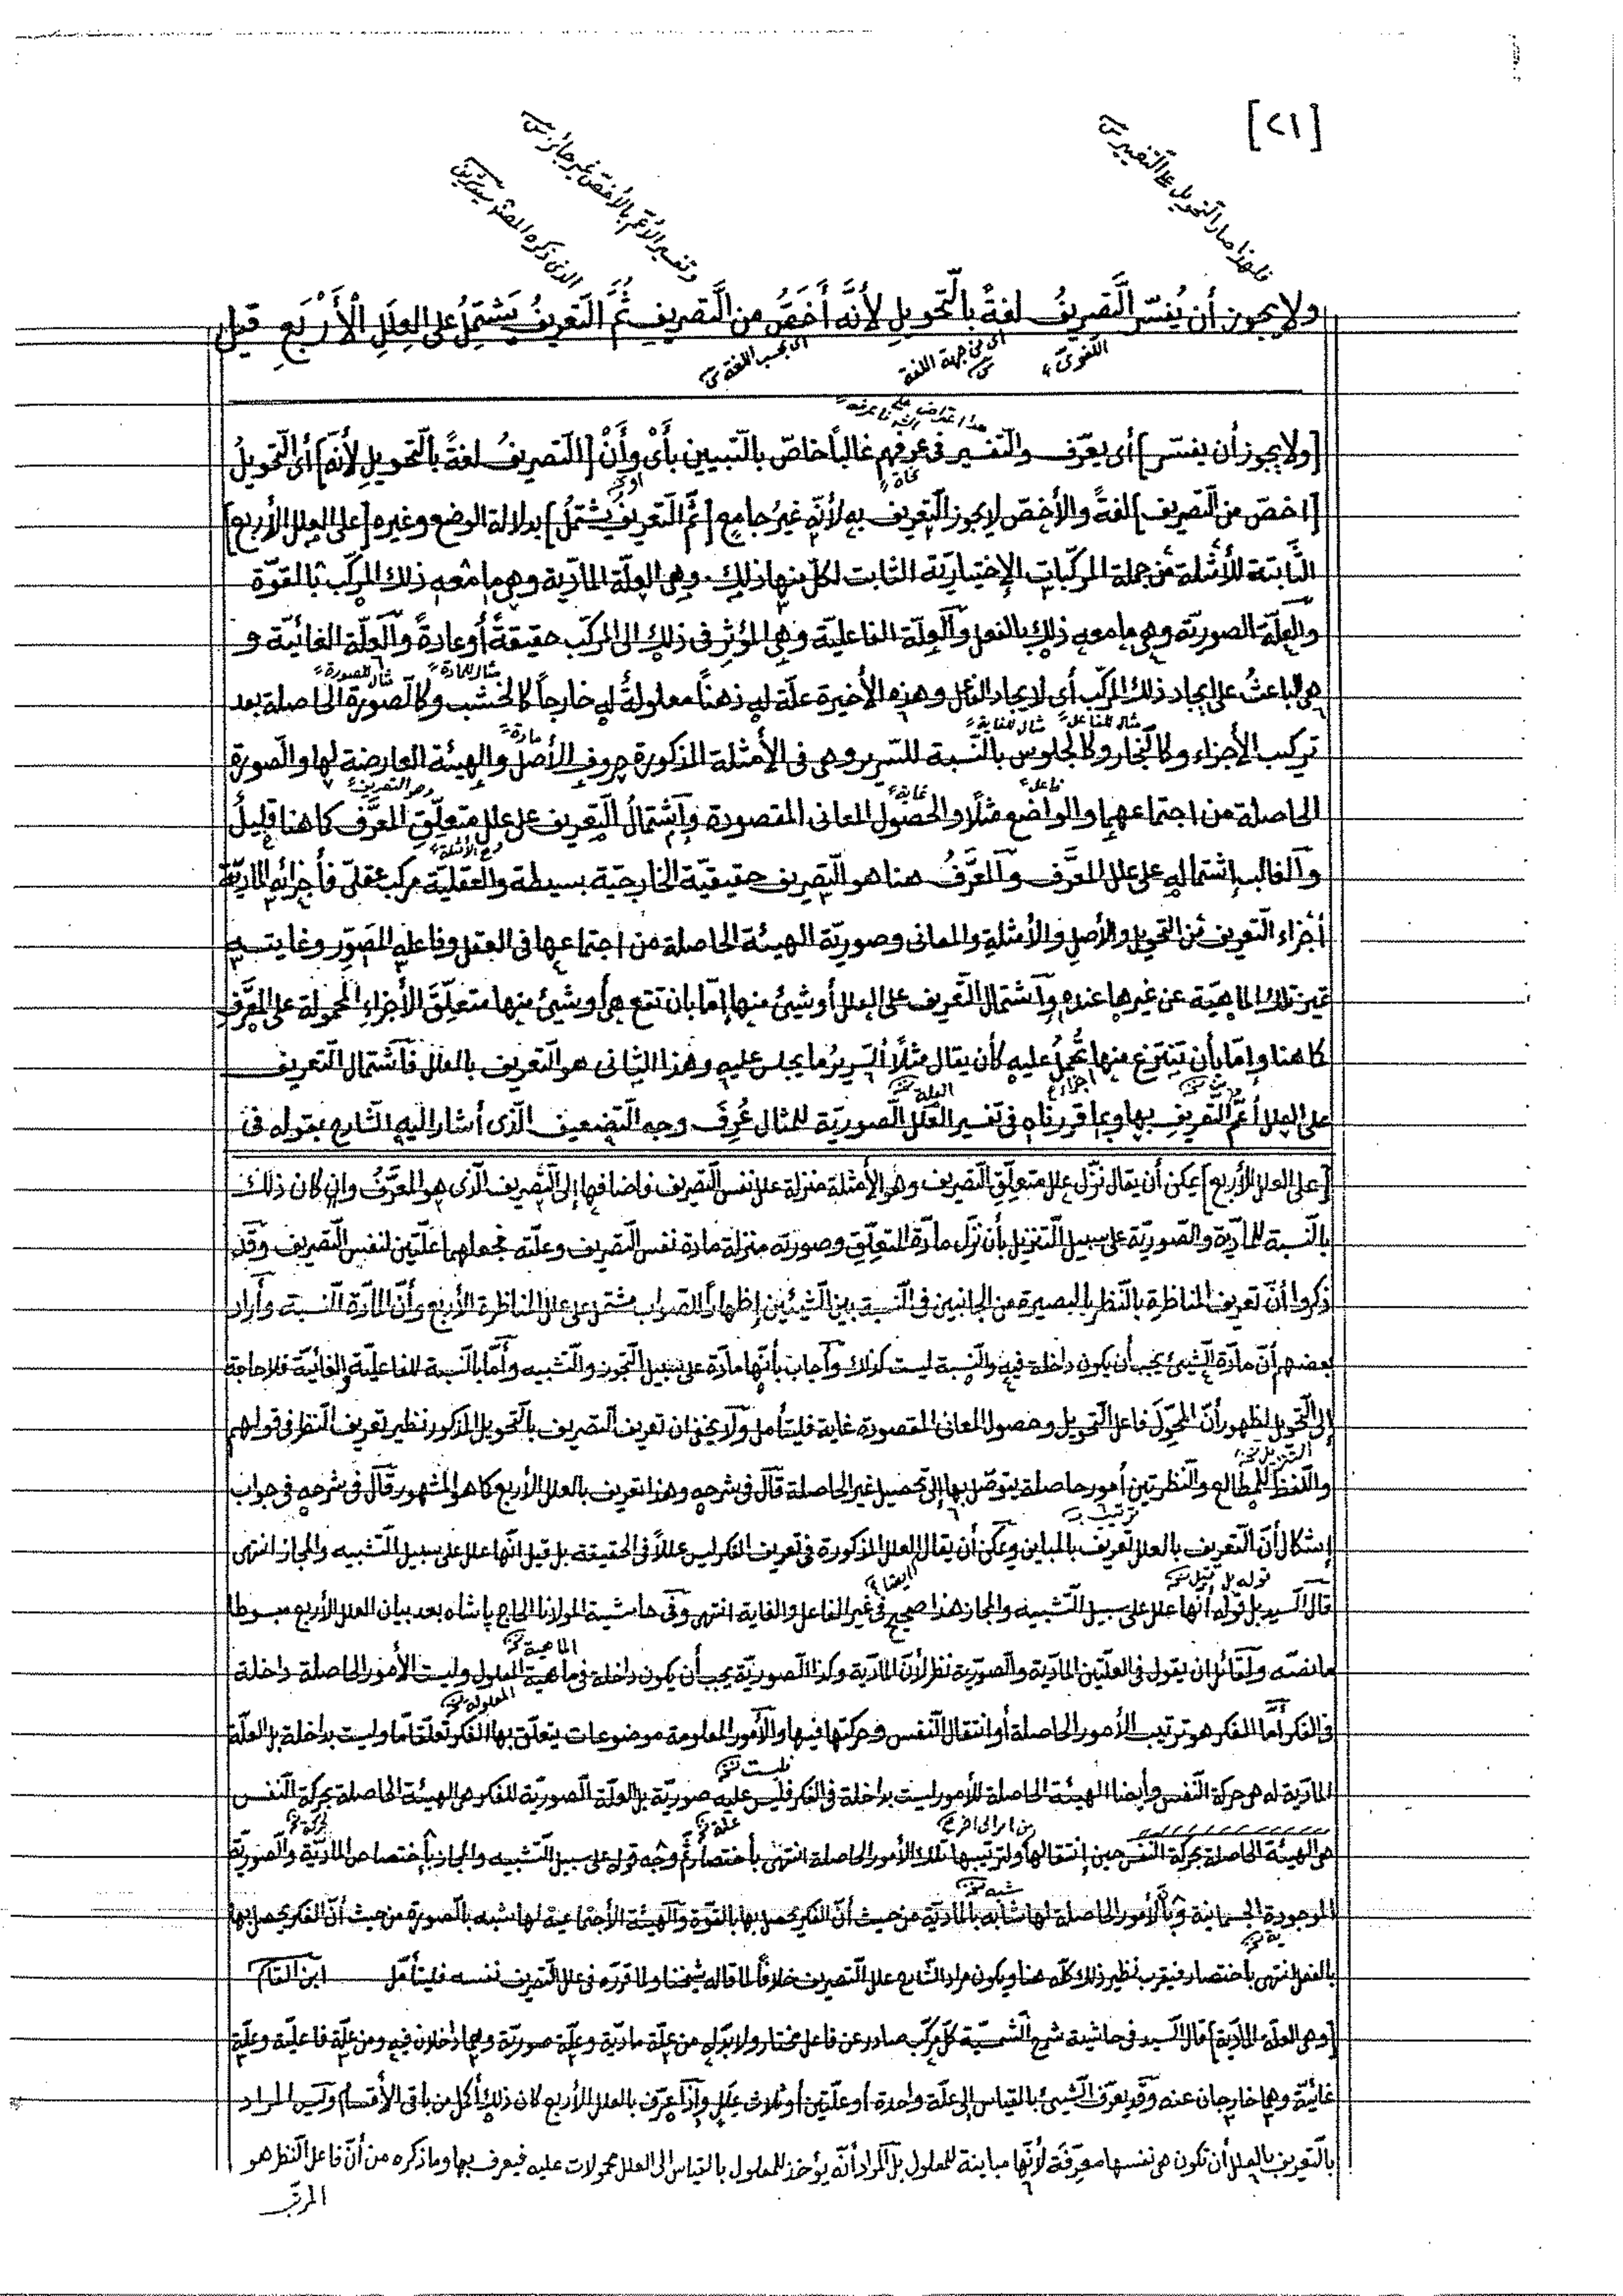 [٢١]
فلهذا صار التحويل على التغيير
وتفسير الأعمّ بالأخصّ غير جائز
الذى ذكره المصنّف
ولا يجوز أن يُفسّر التَّصريفُ لغةً بالتّحويلِ لأنَّهُ أَخَصُّ من التَّصريفِ ثُمَّ التَّعريفُ يَشتَمِلُ على العِلَلِ الْأَرْبَعِ قيل
اللغوىّ
اى من جهة اللغة
اى بحسب اللغة
[ولا يجوز أن يفسّر] أى يعرّف والتّفسير فى عرفهم غالباً خاصّ بالتّبيين بأَىْ وأَنْ [التّصريفُ لغةً بالتّحويلِ لأنّه] أى التّحويلُ
[اخصّ من التّصريف] لغةً والأخصّ لا يجوز التّعريف به لأنّه غيرُ جامع [ثمّ التّعريفُ يشتملُ] بدلالة الوضع وغيره [على العلل الأربع]
الثّابتة للأمثلة من جملة المركّبات الإختياريّة الثابت لكلّ منها ذلك. وهى العلّة المادّية وهى ما معه ذلك المركّب بالقوّة
والعلّة الصوريّة وهى ما معه ذلك بالفعل والعلّة الفاعلية وهى المؤثر فى ذلك اى المركّب حقيقةً أو عادةً والعلّة الغائيّة و
هى الباعثُ على إيجاد ذلك المركّب أى لإيجاد الفاعل وهذه الأخيرة علّة له ذهناً معلولةٌ له خارجاً كالخشب وكالصورة الحاصلة بعد
مثال للمادة
مثال للصورة
تركيب الأجزاء وكالنّجار وكالجلوس بالنّسبة للسّرير وهى فى الأمثلة المذكورة حروف الأصل والهيئة العارضة لها والصّورة
مثال للفاعل
مثال للغاية
مادة
الحاصلة من اجتماعهما والواضع مثلًا والحصول المعانى المقصودة وإشتمالُ التّعريف على علل متعلّقِ المعرَّف كما هنا قليلٌ
فاعل
غاية
وهو التصريف
والغالب إشتماله على علل المعرَّف والمعرَّفُ هنا هو التّصريف حقيقيّة الخارجيّة بسيطة والعقليّة مركب عقلىّ فأجزائه المادّيّة
أجزاء التّعريف من التحويل والأصل والأمثلة والمعانى وصوريّة الهيئة الحاصلة من اجتماعها فى العقل وفاعله المصوّر وغايته
تميز تلك الماهيّة عن غيرها عنده وإشتمال التّعريف على العلل أو شيئ منها إمّا بان تقع هى أو شيئ منها متعلّقَ الأجزاءِ المحمولة على المعرَّفِ
كما هنا وإمّا بأن يُنتزع منها محمولٌ عليه كأن يقال مثلًا السّريرُ ما يجلس عليه وهذا الثانى هو التّعريف بالعلل فاشتمال التّعريف
على العلل أعمّ التّعريف بها وبما قررناه فى تفسير العلل الصّوريّة للمثال عُرِفَ وجه التّضعيف الّذى أشار اليه الشّارح بقوله فى
[على العلل الأربع] يمكن أن يقال نزّل علل متعلّق التّصريف وهو الأمثلة منزلة علل نفس التّصريف فاضافها إلى التّصريف الّذى هو المعرَّفُ وان كان ذلك
بالنّسبة للمادّية والصّوريّة على سبيل التّنزيل بأن نزّل مادّة المتعلِّق وصورته منزلة مادة نفس التّصريف وعلّته فجعلهما علّتين لنفس التّصريف وقد
ذكروا أنّ تعريف المناظرة بالنّظر بالبصيرة من الجانبين فى النّسبة بين الشّيئين إظهاراً للصّواب مشتمل على علل المناظرة الأربع وأنّ المادّة النّسبة وأراد
بعضهم أنّ مادّة الشّيئ يجب أن يكون داخلة فيه والنّسبة ليست كذلك وأجاب بأنّها مادّة على سبيل التّجوز والتّشبيه وأمّا بالنّسبة للفاعليّة والغائيّة فلا حاجة
إلى التّحويل لظهور أنّ المحوِّلَ فاعل التّحويل وحصول المعانى المقصودة غاية فليتأمل ولا يخفى ان تعريف التّصريف بالتّحويل المذكور نظير تعريف النّظر فى قولهم
واللّفظ للمطالع والنّظر ترتيب أمور حاصلة يتوصّل بها إلى تحصيل غير الحاصلة قال فى شرحه وهذا تعريف بالعلل الأربع كما هو المشهور قال فى شرحه فى جواب
إشكال أنّ التّعريف بالعلل تعريف بالمباين ويمكن أن يقال العلل المذكورة فى تعريف الفكر ليس عللاً فى الحقيقة بل قيل انّها علل على سبيل التّشبيه والمجاز انتهى
قال السّيد بل قوله أنها علل على سبيل التّشبيه والمجاز هذا صحيح فى غير الفاعل والغاية انتهى وفى حاشية المولانا الحاج پاشاه بعد بيان العلل الأربع مبسوطا
ما نصّه ولقائل ان يقول فى العلّتين المادّية والصّوريّة نظر لأنّ المادّية وكذا الصّوريّة يجب أن يكون داخلة فى ماهية المعلول وليست الأمور الحاصلة داخلة
فى الفكر أمّا الفكر هو ترتيب الأمور الحاصلة أو انتقال النّفس وحركتها فيها والأمور المعلومة موضوعات يتعلّق بها الفكر تعلّقا مّا وليست بداخلة بل العلّة
المادّية له هى حركة النّفس وأيضا الهيئة الحاصلة للأمور ليست بداخلة فى الفكر فليس عليه صوريّة بل العلّة الصّوريّة للفكر هى الهيئة الحاصلة بحركة النّفس
هى الهيئة الحاصلة بحركة النّفس حين إنتقالها ولترتيبها تلك الأمور الحاصلة انتهى بأختصار ثمّ وجه قوله على سبيل التّشبيه والمجاز بأختصاص المادّيّة والصّوريّة
الموجودة الجسمانية وبأنّ الأمور الحاصلة لها شابه بالمادّيّة من حيث أنّ الفكر يحصل بها بالقوّة والهيئة الأجتماعية لها شبه بالصّورة من حيث أنّ الفكر يحصل بها
بالفعل انتهى باختصار فيقرب نظير ذلك كلّه هنا ويكون مراد الشّارح علل التّصريف خلافاً لما قاله شيخنا ولما قرّره فى علل التّصريف نفسه فليتأمّل ابن القاسم
[وهى العلّة المادّية] قال السّيد فى حاشية شرح الشّمسيّة كلّ مركّب صادر عن فاعل مختار ولا بدّ له من علّة ماديّة وعلّة صوريّة وهما داخلان فيه ومن علّة فاعليّة وعلّة
غائيّة وهما خارجان عنه وقد يعرّف الشّيئ بالقياس إلى علّة واحدة أو علّتين أو ثلاث علل وإذا عرّف بالعلل الأربع كان ذلك أكمل من باقى الأقسام وليس المراد
بالتّعريف بالعلل أن تكون هى نفسها معرِّفة لأنّها مباينة للمعلول بل المراد أنّه يؤخذ للمعلول بالقياس الى العلل محمولات عليه فيعرف بها وما ذكره من أنّ فاعل النّظر هو
المرتّب